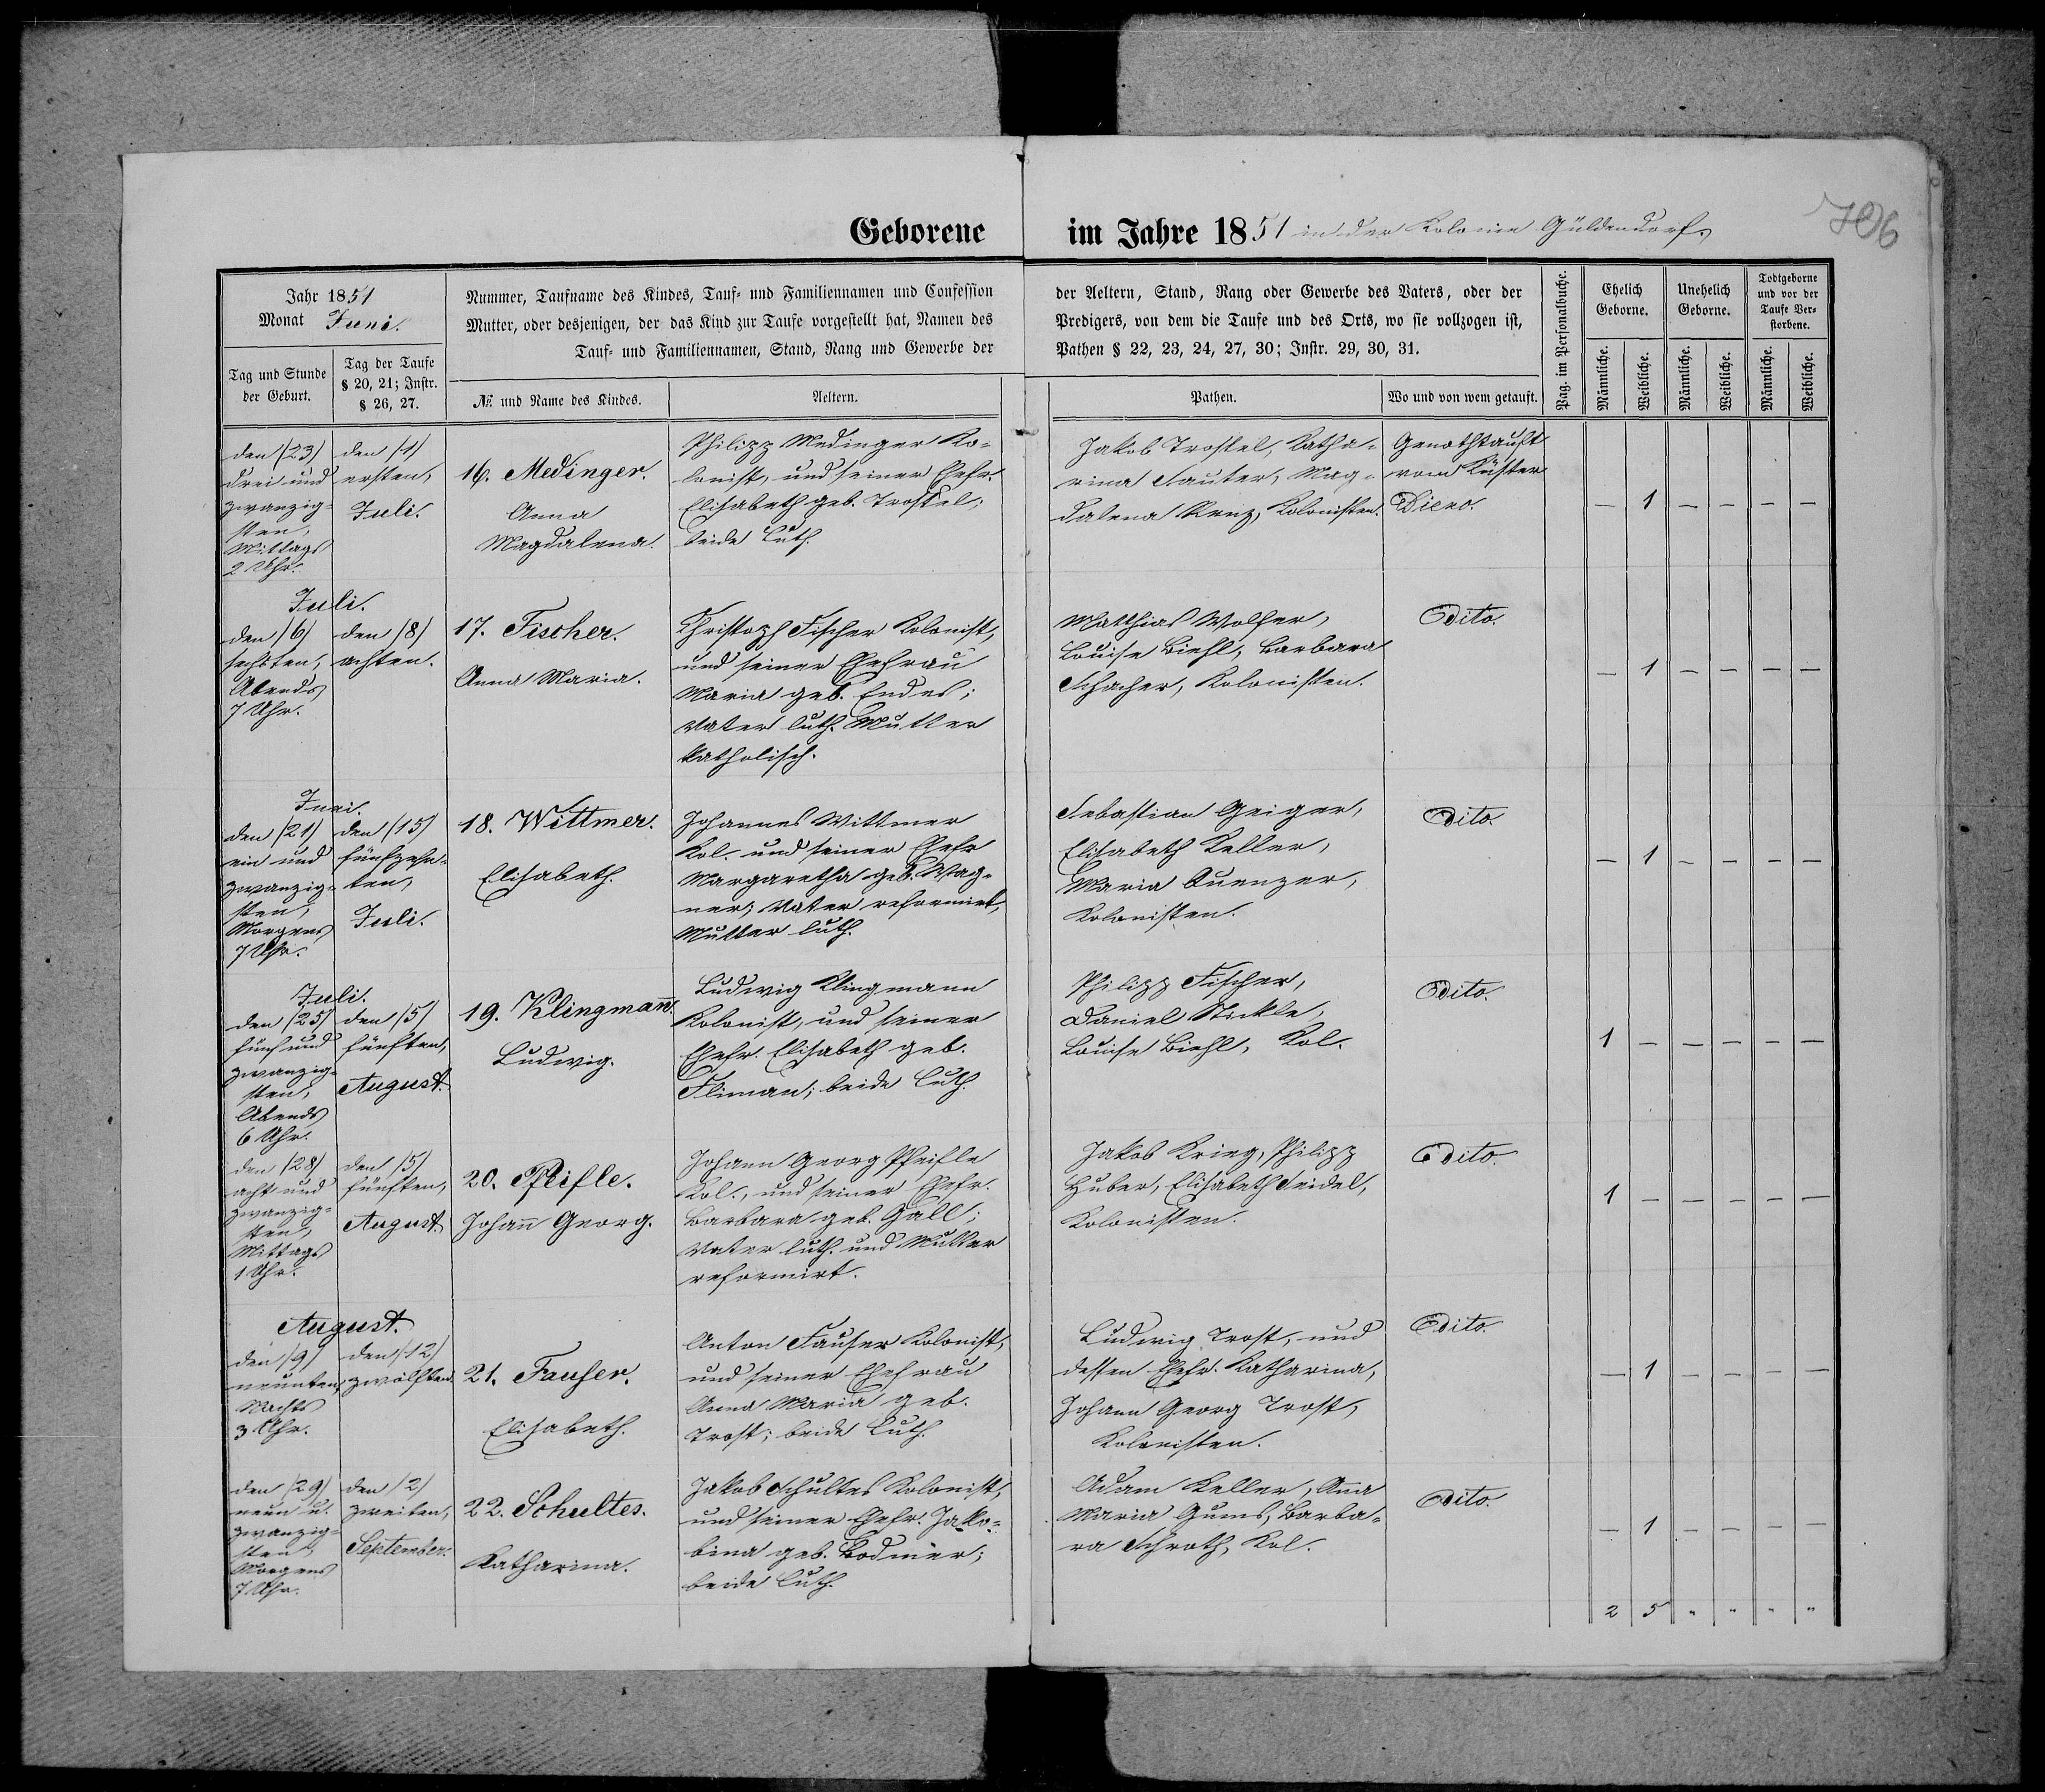 706
Geborene im Jahre 1851 in der Kolonie Güldendorf.
Jahr 1851
Monat Juni.
Nummer, Taufname des Kindes, Tauf- und Familiennamen und Confession
Mutter, oder desjenigen, der das Kind zur Taufe vorgestellt hat, Namen des
Tauf- und Familiennamen, Stand, Rang und Gewerbe der
der Aeltern, Stand, Rang oder Gewerbe des Vaters, oder der
Predigers, von dem die Taufe und des Orts, wo sie vollzogen ist,
Pathen § 22, 23, 24, 27, 30; Instr. 29, 30, 31.
Tag und Stunde
der Geburt.
Tag der Taufe
§ 20, 21; Instr.
§ 26, 27.
№ und Name des Kindes.
Aeltern.
Pathen.
Wo und von wem getauft.
Pag. im Personalbuche.
Ehelich
Geborne.
Unehelich
Geborne.
Todtgeborne
und vor der
Taufe Ver-
storbene.
Männliche.
Weibliche.
Männliche.
Weibliche.
Männliche.
Weibliche.
den (23)
drei und
zwanzig-
sten,
Mittags
2 Uhr.
den (1)
ersten,
Juli.
16. Medinger.
Anna
Magdalena.
Philipp Medinger Ko-
lonist, und seiner Ehefr.
Elisabeth geb. Trostel;
beide luth.
Jakob Trostel, Katha-
rina Sauter, Mag-
dalena Renz, Kolonisten.
Genothtauft
vom Küster
Dieno.
— 1 — — — —
Juli.
den (6)
sechsten,
Abends
7 Uhr.
den (8)
achten.
17. Fischer.
Anna Maria.
Christoph Fischer Kolonist,
und seiner Ehefrau
Maria geb. Endes;
Vater luth. Mutter
katholisch.
Matthias Wolfer,
Louise Biehl, Barbara
Schacher, Kolonisten.
Dito.
— 1 — — — —
Juni.
den (21)
ein und
zwanzig-
sten,
Morgens
7 Uhr.
den (15)
fünfzehn-
ten,
Juli.
18. Wittmer.
Elisabeth.
Johannes Wittmer
Kol. und seiner Ehefr
Margaretha geb. Wag-
ner; Vater reformirt,
Mutter luth.
Sebastian Geiger,
Elisabeth Keller,
Maria Quenzer,
Kolonisten.
Dito.
— 1 — — — —
Juli.
den (25)
fünf und
zwanzig-
sten,
Abends
6 Uhr.
den (5)
fünften,
August.
19. Klingmañ.
Ludwig.
Ludwig Klingmann
Kolonist, und seiner
Ehefr. Elisabeth geb.
Fliman; beide luth.
Philipp Fischer,
Daniel Stickle,
Louise Biehl, Kol.
Dito.
1 — — — — —
den (28)
acht und
zwanzig-
sten,
Mittags
1 Uhr.
den (5)
fünften,
August.
20. Pfeifle.
Johañ Georg.
Johann Georg Pfeifle
Kol., und seiner Ehefr.
Barbara geb. Gall;
Vater luth. und Mutter
reformirt.
Jakob Krieg, Philipp
Huber, Elisabeth Seidel,
Kolonisten.
Dito.
1 — — — — —
August.
den (9)
neunten,
Nachts
3 Uhr.
den (12)
zwölften.
21. Fauser.
Elisabeth.
Anton Fauser Kolonist,
und seiner Ehefrau
Anna Maria geb.
Trost; beide luth.
Ludwig Trost, und
dessen Ehefr. Katharina,
Johann Georg Trost,
Kolonisten.
Dito.
— 1 — — — —
den (29)
neun u.
zwanzig-
sten
Morgens
7 Uhr.
den (2)
zweiten,
September.
22. Schultes.
Katharina.
Jakob Schultes Kolonist,
und seiner Ehefr. Jako-
bina geb. Bodmer;
beide luth.
Adam Keller, Aña
Maria Gums, Barba-
ra Schroth, Kol.
Dito.
— 1 — — — —
2 5 " " " "